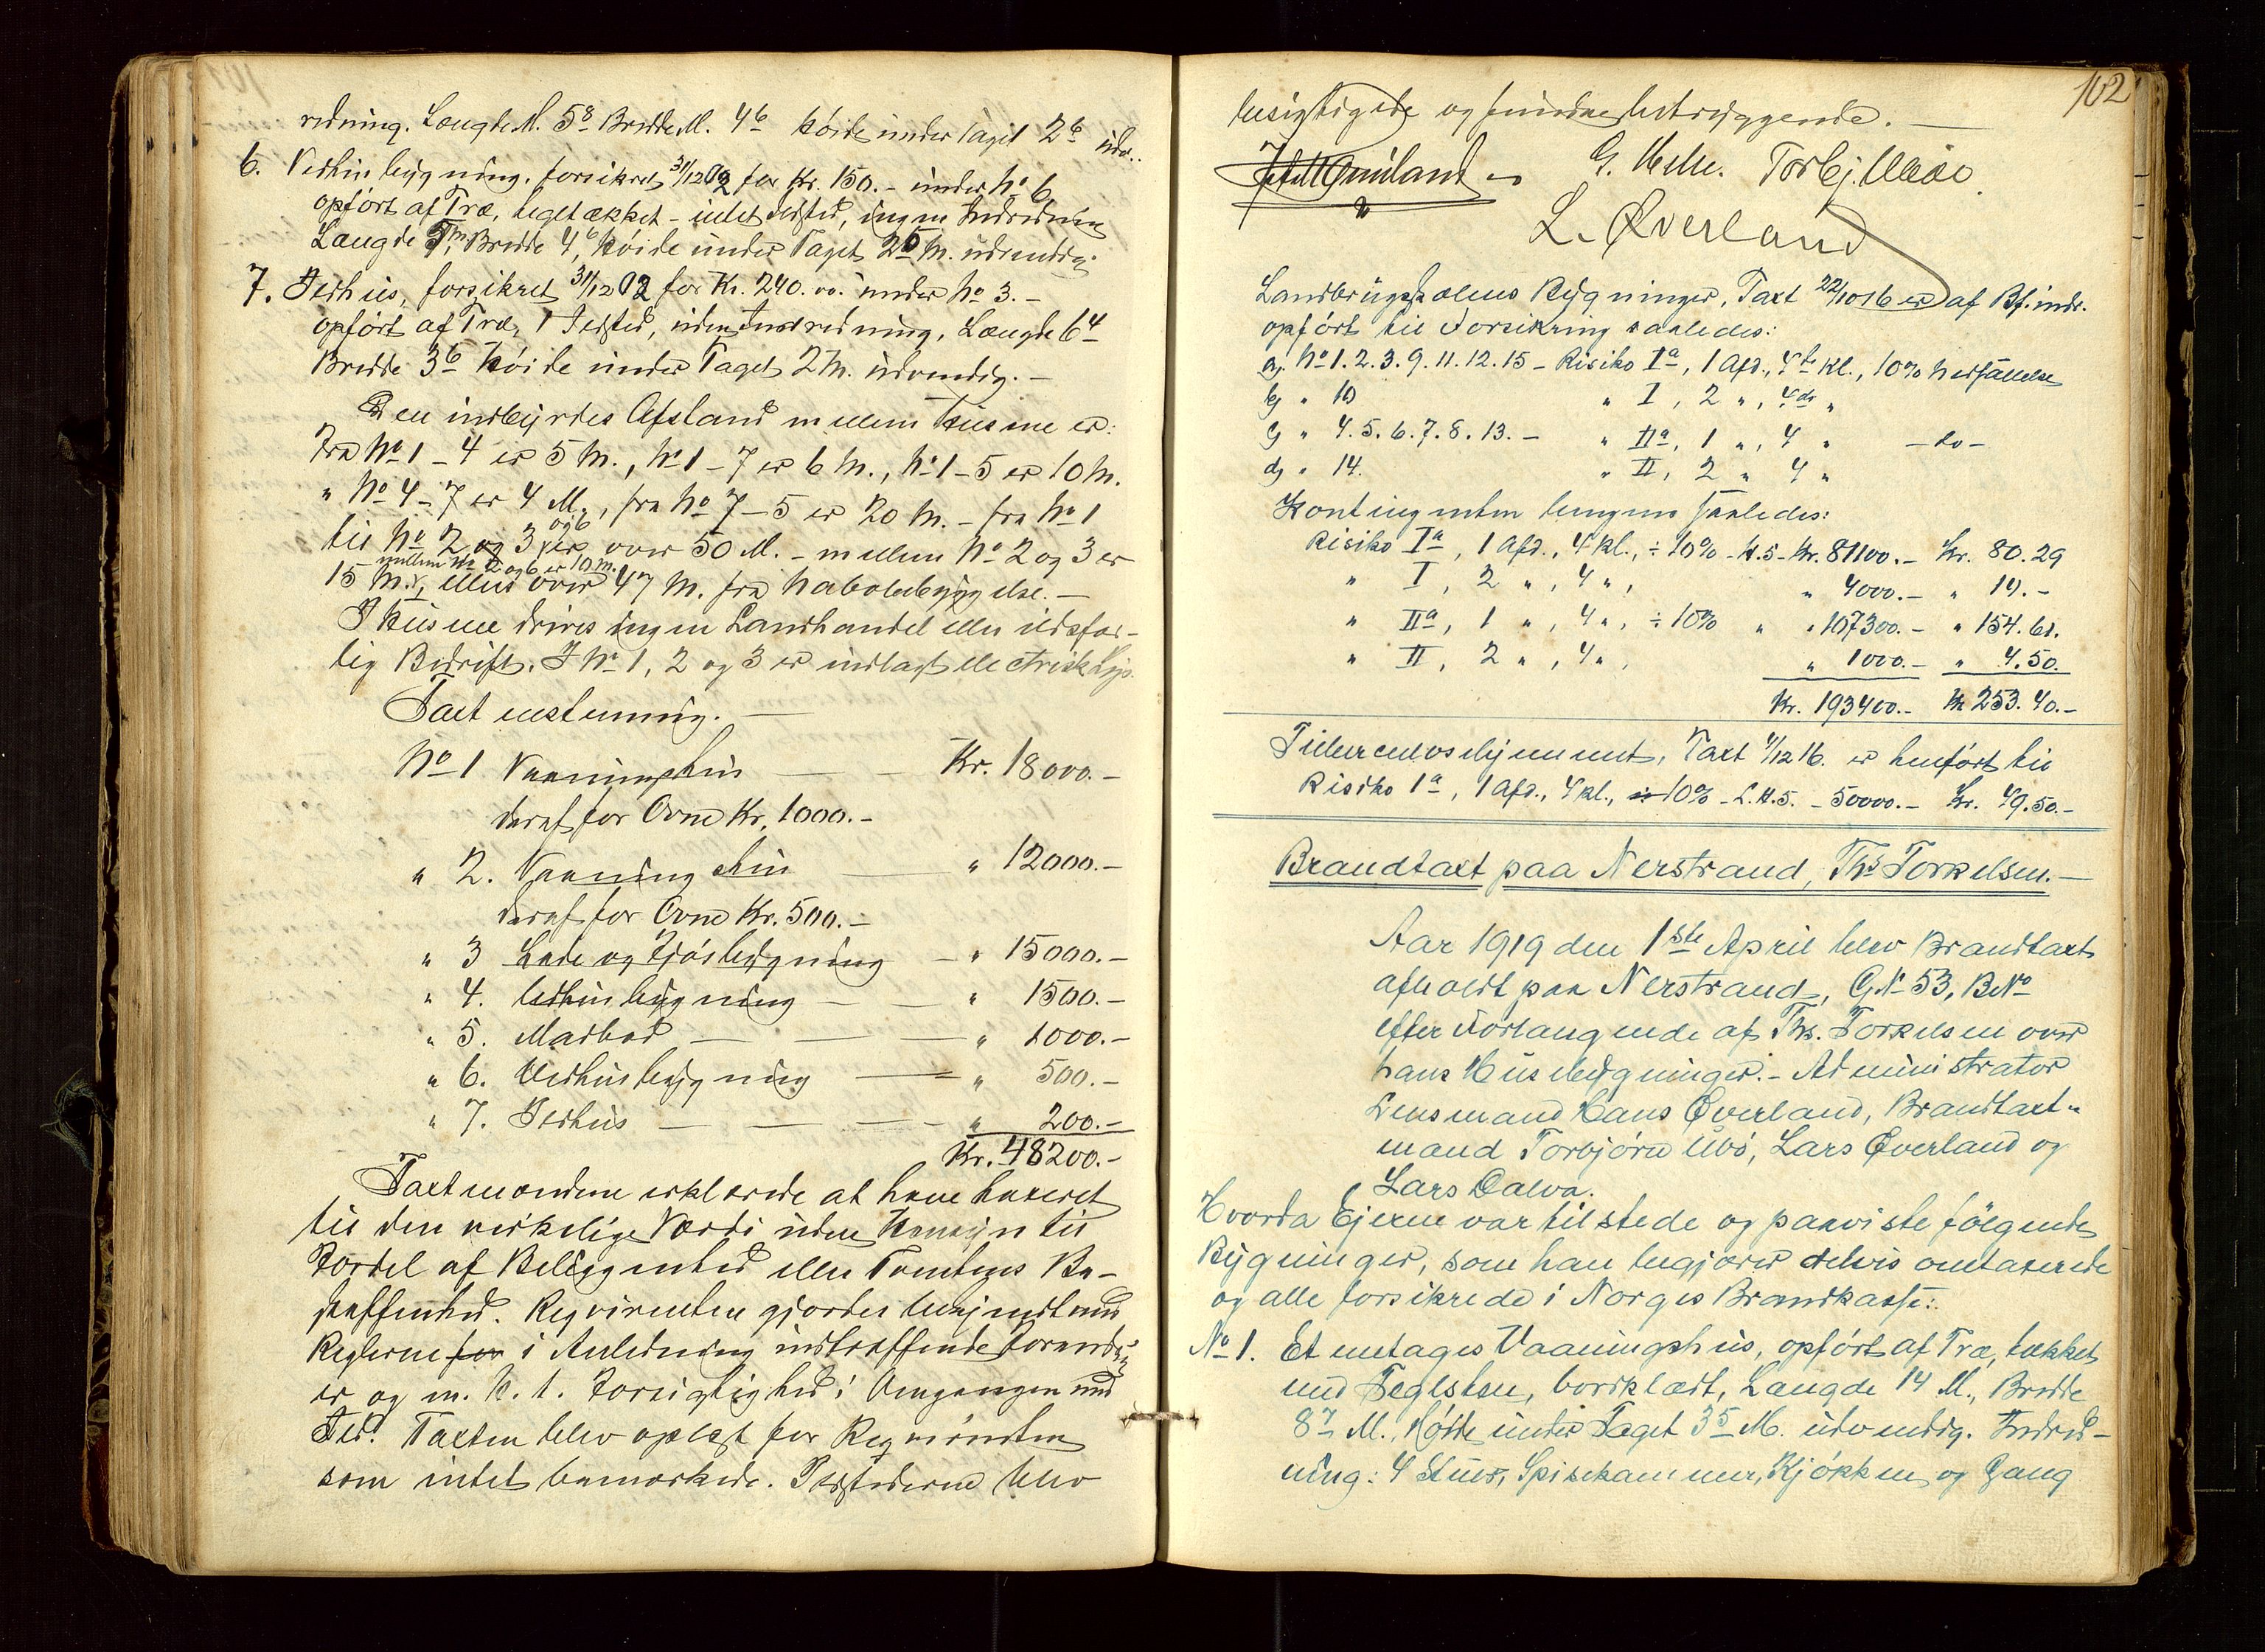 redning. Længde M. 5⁸ Bredde M. 4⁶ Höide under Taget 2⁶ udv..
6. Vedhusbygning, forsikret 31/12 02 for Kr. 150.- under No 6
opført af Træ, teglækket - intet Ildsted, ingen Indredning
Længde 5 M, Bredde 4⁶, Höide under Taget 2⁵ M. udvendig.
7. Ildhus, forsikret 31/12 02 for Kr. 240.00. under No 3.-
opført af Træ, 1 Ildsted, uden Indredning, Længde 6⁴
Bredde 3⁶ Höide under Taget 2 M. udvendig.-
Den indbyrdes Afstand mellem Husene er:
Fra No 1 - 4 er 5 M., No 1 - 7 er 6 M., No 1 - 5 er 10 M.
" No 4 - 7 er 4 M., fra No 7 - 5 er 20 M. - fra No 1
til No 2 og 3 og 6 er over 50 M. - mellem No 2 og 3 er
mellem No 2 og 6 er 10 M.
15 M., ellers over 47 M. fra Nabobebyggelse.-
I Husene drives ingen Landhandel eller ildsfar-
lig Bedrift. I No 1, 2 og 3 er indlagt electrisk Lys.
Taxt ansettning.-
No 1 Vaaningshus - - Kr. 18000.-
deraf for Ovne Kr. 1000.-
" 2. Vaaningshus " 12000.-
deraf for Ovne Kr. 500.-
" 3 Lade og Fjösbygning - " 15000.-
" 4. Vedhusbygning - - " 1500.-
" 5. Madbod - - - " 1000.-
" 6. Vedhusbygning - " 500.-
" 7. Ildhus - - - " 200.-
Kr. 48200.-
Taxtmændene erklærede at have taxeret
til den virkelige Værdi uden Hensyn til
Fordel af Beliggenhed eller Tomtens Be-
skaffenhed. Reqvirenten gjordes bekjendt med
Reglerne for i Anledning indtræffende Forandring
er og m. H. t. Forsigtighed i Omgangen med
Ild. Taxten blev oplæst for Reqvirenten
som intet bemærkede. Ildstederne blev
102
besigtigede og fundne betryggende.-
G. Helle. Torbj. Ubøe
L. Øverland
Landbrugsskolens Bygninger, Taxt 22/10 16 er af Bf. indr.
opfört til Forsikring saaledes:
a) No 1. 2. 3. 9. 11. 12. 15 - Risiko Ia, 1 Afd., 4de Kl., 10% Nedsættelse
b) " 10 " I, 2 ", 4de "
c) " 4. 5. 6. 7. 8. 13. - " IIa, 1 ", 4 " - do -
d) " 14. " II, 2 " 4 "
Kontingenten beregnes saaledes:
Risiko Ia, 1 Afd., 4 Kl., ÷ 10% - H.5 - Kr. 81100.- Kr. 80.29
" I, 2 ", 4 ", " 4000.- " 14.-
" IIa, 1 ", 4 ", ÷ 10% " " 107300.- " 154.61.
" II, 2 ", 4 ", " 1000.- " 4.50.
Kr. 193400.- Kr 253.40.-
Tuberculosehjemmet, Taxt 4/12 16. er henfört til
Risiko 1a, 1 Afd., 4 Kl., ÷ 10% - L.H.5. - 50000.- Kr. 49.50.-
Brandtaxt paa Nerstrand, Ths Torkelsen.-
Aar 1919 den 1ste April blev Brandtaxt
afholdt paa Nerstrand, GNo 53, BNo
efter Forlangende af Ths. Torkelsen over
hans Husebygninger.- Administrator
Lensmand Hans Øverland, Brandtaxt-
mænd Torbjörn Ubö, Lars Øverland og
Lars Dalva.
Hvorda Ejeren var tilstede og paaviste fölgende
Bygninger, som han begjærer delvis omtaxerede
og alle forsikrede i Norges Brandkasse:
No 1. Et enetages Vaaningshus, opfört af Træ, tækket
med Teglsten, bordklædt, Længde 14 M., Bredde
8⁷ M., Höide under Taget 3⁵ M. udvendig. Indred-
ning: 4 Stuer, Spisekammer, Kjökken og Gang